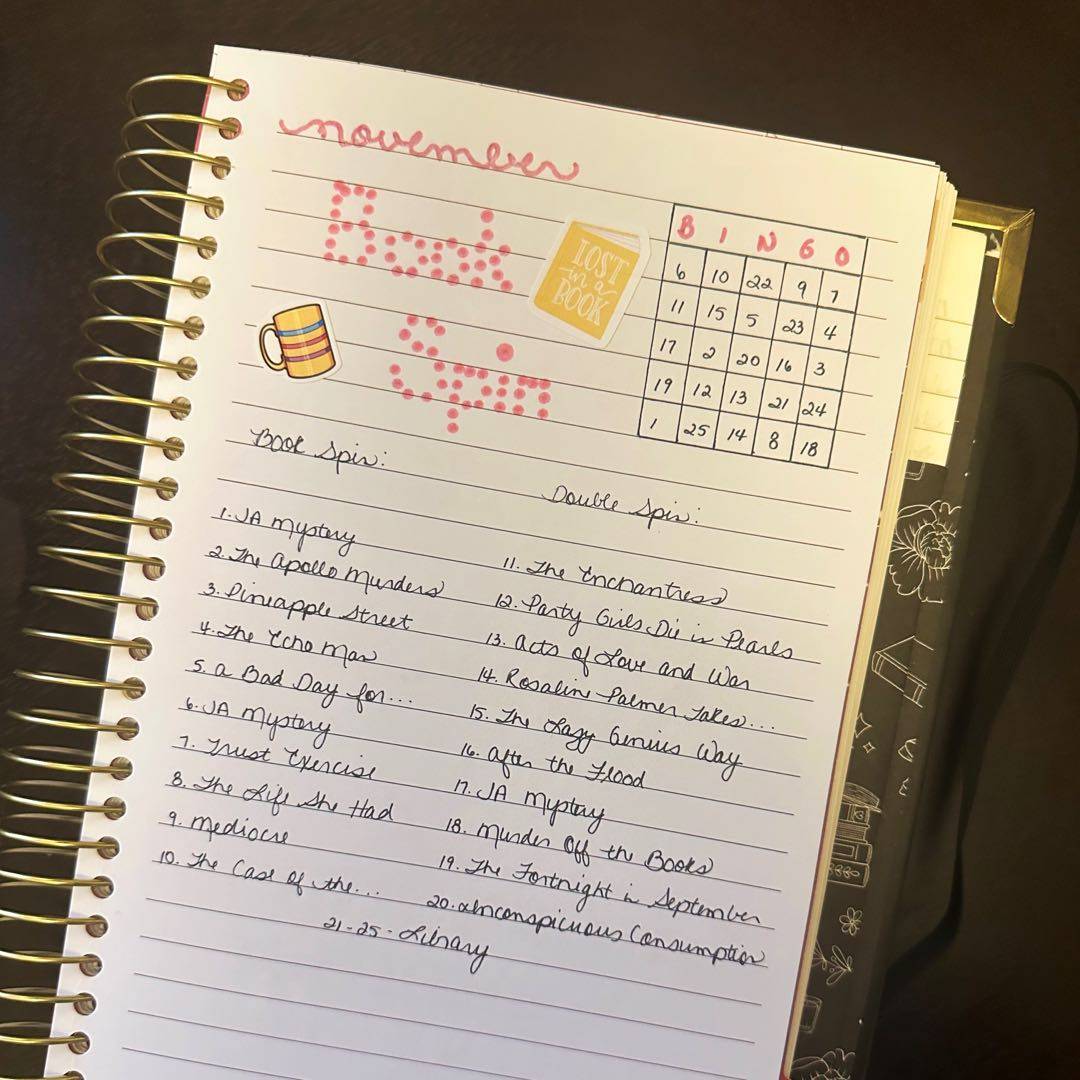 november
Book
Spin
LOST
in a
BOOK
B I N G O
6 10 22 9 7
11 15 5 23 4
17 2 20 16 3
19 12 13 21 24
1 25 14 8 18
Book Spin:
1. JA Mystery
2. The Apollo Murders
3. Pineapple Street
4. The Echo Man
5. A Bad Day for...
6. JA Mystery
7. Trust Exercise
8. The Life She Had
9. Mediocre
10. The Case of the...
Double Spin:
11. The Enchantress
12. Party Girls Die in Pearls
13. Acts of Love and War
14. Rosaline Palmer Takes...
15. The Lazy Genius Way
16. After the Flood
17. JA Mystery
18. Murder Off the Books
19. The Fortnight in September
20. Inconspicuous Consumption
21-25 - Library